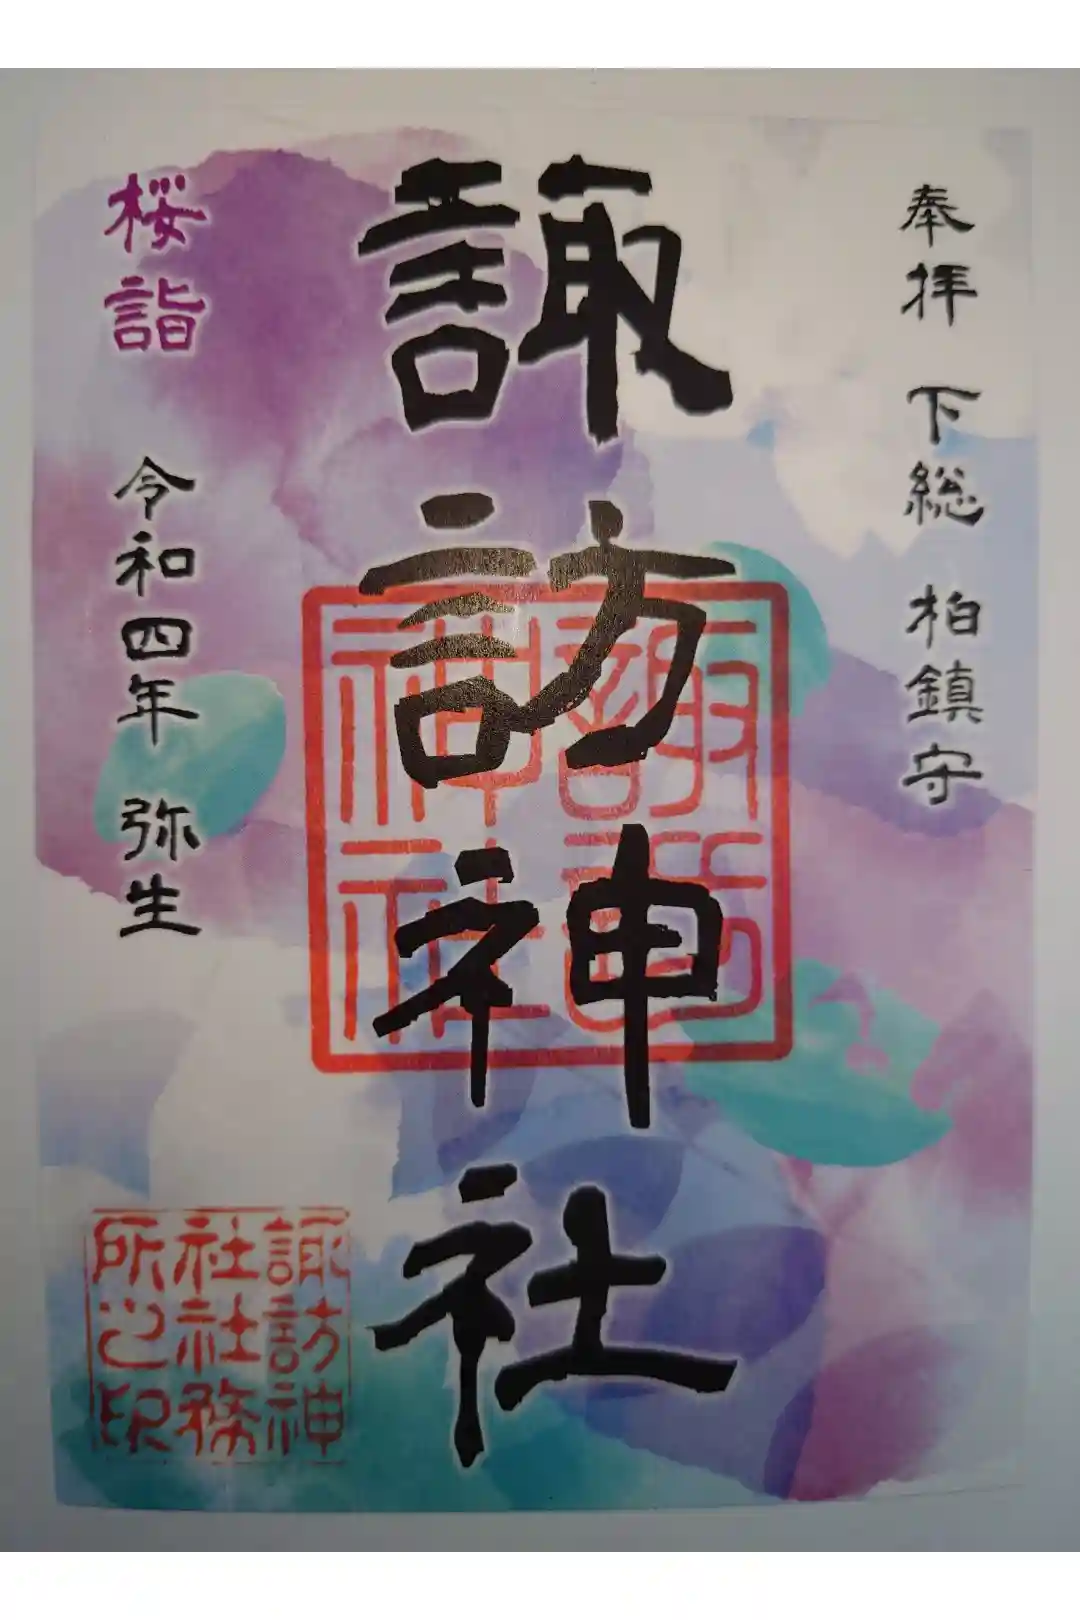 奉拝 下総 柏鎮守
諏訪神社
諏訪
神社
桜詣 令和四年 弥生
諏訪神
社社務
所之印